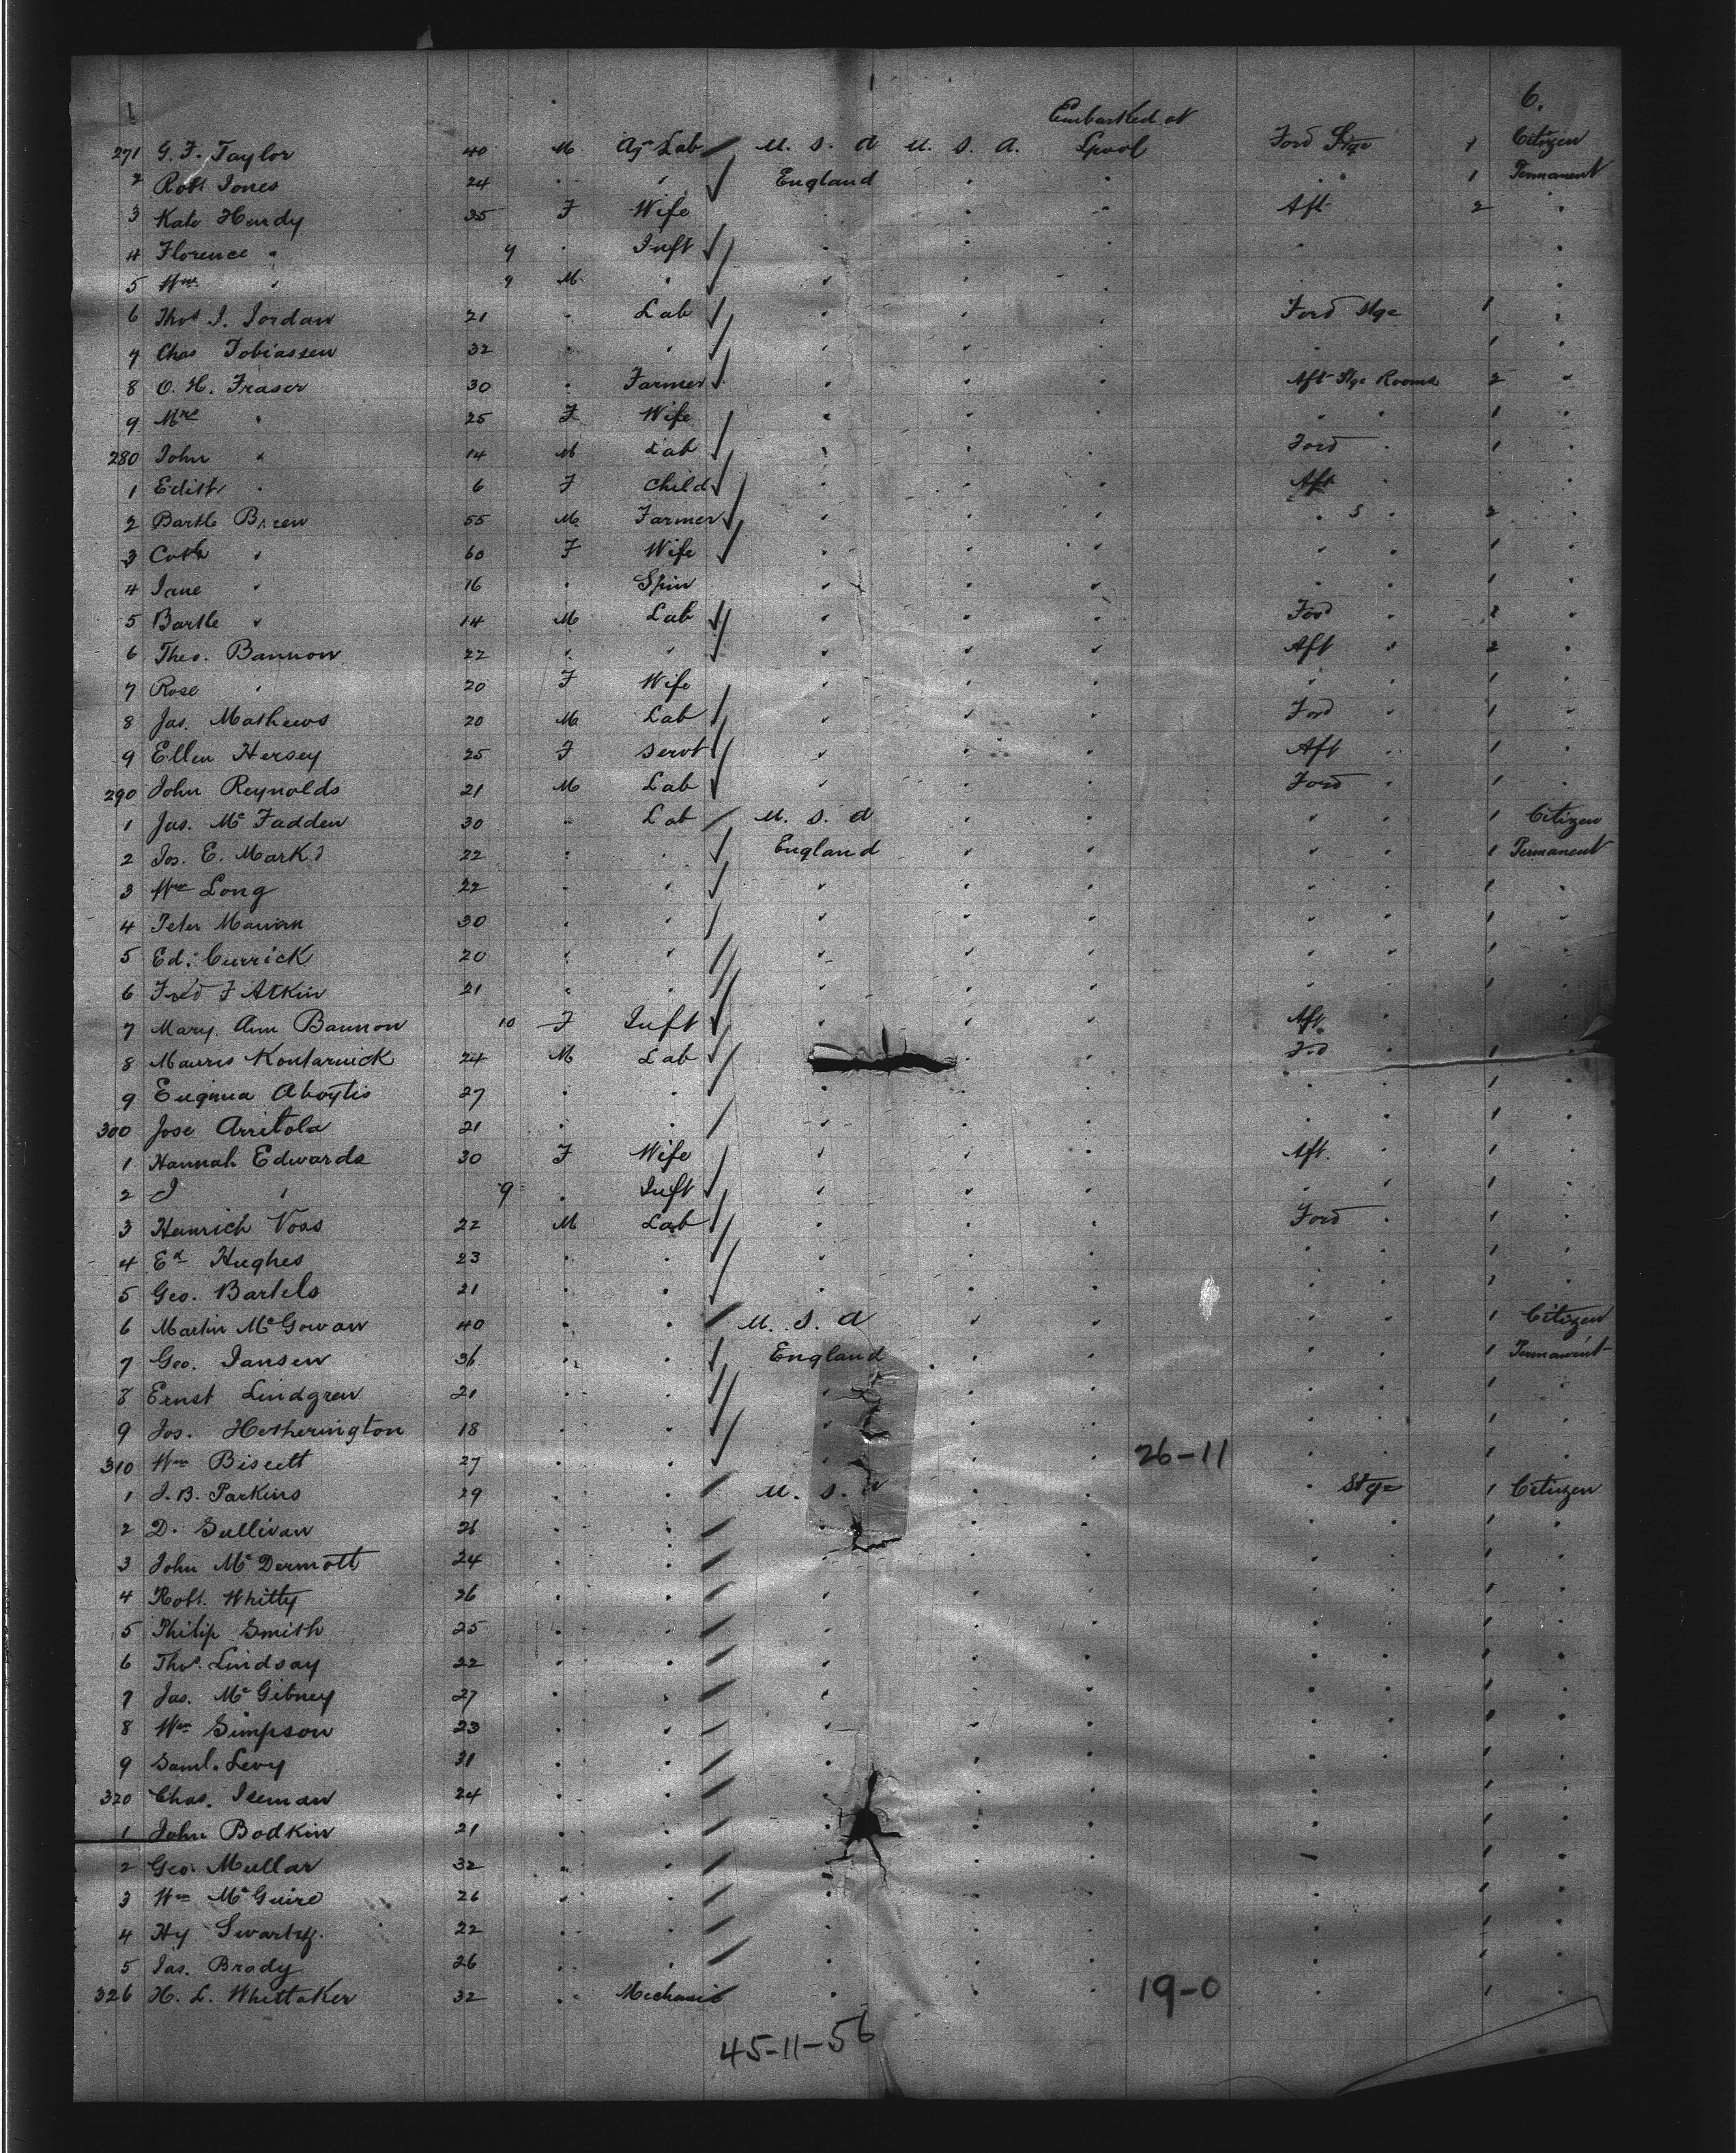 6.
Embarked at
271 G. F. Taylor 40 M Ag Lab U. S. A U. S. A. Lpool Ford Stge 1 Citizen
2 Robt Jones 24 " " England " " " 1 Permanent
3 Kate Hendy 35 F Wife " " " Aft 2 "
4 Florence " 9 " Inft " " " " "
5 Wm " 9 M " " " " "
6 Thos J. Jordan 21 " Lab " " " Ford Stge 1 "
7 Chas Tobiassen 32 " " " " " " 1 "
8 O. H. Fraser 30 " Farmer " " " Aft Stge Rooms 2 "
9 Mrs " 25 F Wife " " " " " 1 "
280 John " 14 M Lab " " " Ford " 1 "
1 Edith " 6 F Child " " " Aft " "
2 Bartle 55 M Farmer " " " " 3 " 2 "
3 Cath " 60 F Wife " " " " " 1 "
4 Jane " 16 " Spin " " " " " 1 "
5 Bartle " 14 M Lab " " " Ford " 2 "
6 Theo. Bannon 22 " " " " " Aft " 2 "
7 Rose " 20 F Wife " " " " " 1 "
8 Jas. Mathews 20 M Lab " " " Ford " 1 "
9 Ellen Hersey 25 F Servt " " " Aft " 1 "
290 John Reynolds 21 M Lab " " " Ford " 1 "
1 Jas. McFadden 30 " Lab U. S. A " " " " 1 Citizen
2 Jos. E. Mark 22 " " England " " " " 1 Permanent
3 Wm Long 22 " " " " " " " 1 "
4 Peter 30 " " " " " " " 1 "
5 Ed. Currick 20 " " " " " " " 1 "
6 Fred F Atkin 21 " " " " " " " 1 "
7 Mary Ann Bannon 10 F Inft " " " Aft " "
8 Mauris Kontarnick 24 M Lab " " Frd " 1 "
9 Euginia Aboytis 27 " " " " " " " 1 "
300 Jose Arritola 21 " " " " " " " 1 "
1 Hannah Edwards 30 F Wife " " " Aft. " 1 "
2 J " 9 " Inft " " " " " "
3 Heinrich Voss 22 M Lab " " " Ford " 1 "
4 Ed Hughes 23 " " " " " " " 1 "
5 Geo. Bartels 21 " " " " " " " 1 "
6 Martin McGowan 40 " " U. S. A " " " " 1 Citizen
7 Geo. Jansen 36 " " England " " " " 1 Permanent
8 Ernst Lindgren 21 " " " " " " " 1 "
9 Jos. Hetherington 18 " " " " " " " 1 "
310 Wm Biscett 27 " " " " " 26-11 " " 1 "
1 J. B. Parkins 29 " " U. S. A " " " Stge 1 Citizen
2 D. Sullivan 26 " " " " " " " 1 "
3 John McDermott 24 " " " " " " " 1 "
4 Robt. Whitty 26 " " " " " " " 1 "
5 Philip Smith 25 " " " " " " " 1 "
6 Thos. Lindsay 22 " " " " " " " 1 "
7 Jas. McGibney 27 " " " " " " " 1 "
8 Wm Simpson 23 " " " " " " " 1 "
9 Saml. Levy 31 " " " " " " " 1 "
320 Chas. Iseman 24 " " " " " " " 1 "
1 John Bodkin 21 " " " " " " 1 "
2 Geo. Mullar 32 " " " " " " 1 "
3 Wm McGuire 26 " " " " " " 1 "
4 Hy Swartz. 22 " " " " " " 1 "
5 Jas. Brady 26 " " " " " " 1 "
326 H. L. Whittaker 32 " Mechanic " " " 19-0 " 1 "
45-11-56